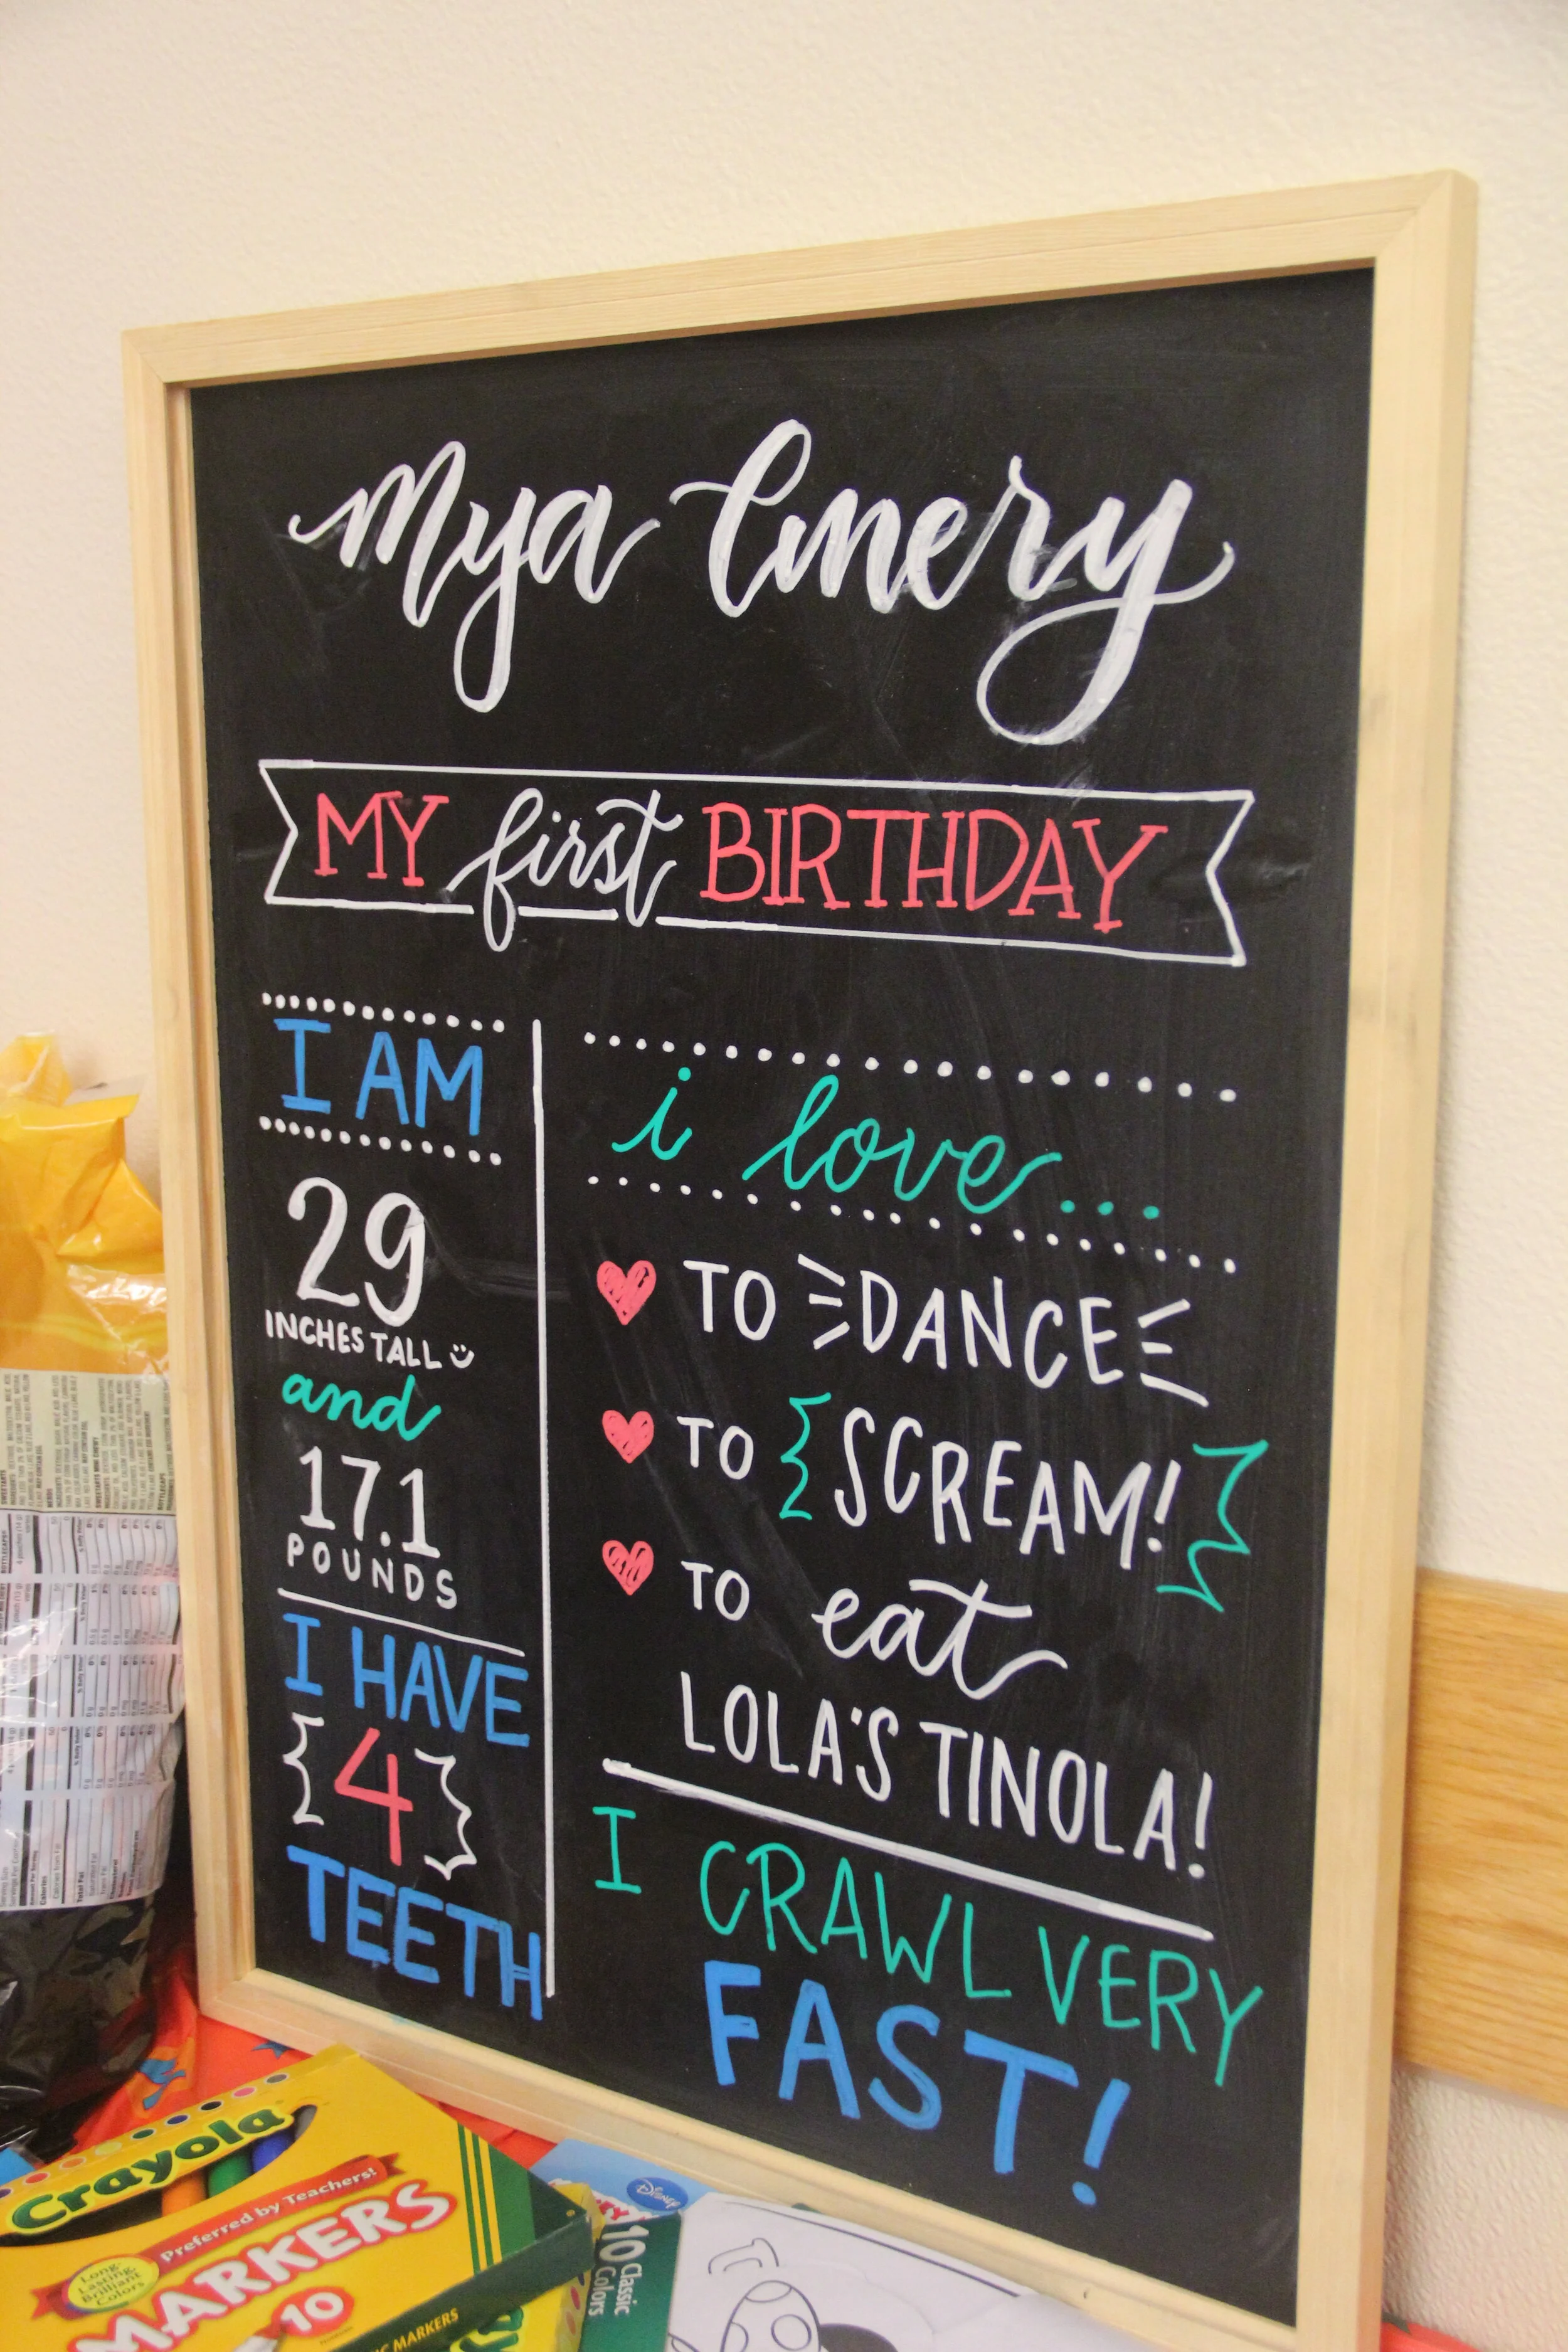 Mya Emery
MY first BIRTHDAY
I AM
29
INCHES TALL
and
17.1
POUNDS
I HAVE
4
TEETH
i love...
TO DANCE
TO SCREAM!
TO eat
LOLA'S TINOLA!
I CRAWL VERY
FAST!
Crayola
Preferred by Teachers!
MARKERS
10
Long-
Lasting
Brilliant
Colors
MARKERS
Disney
10 Classic
Colors